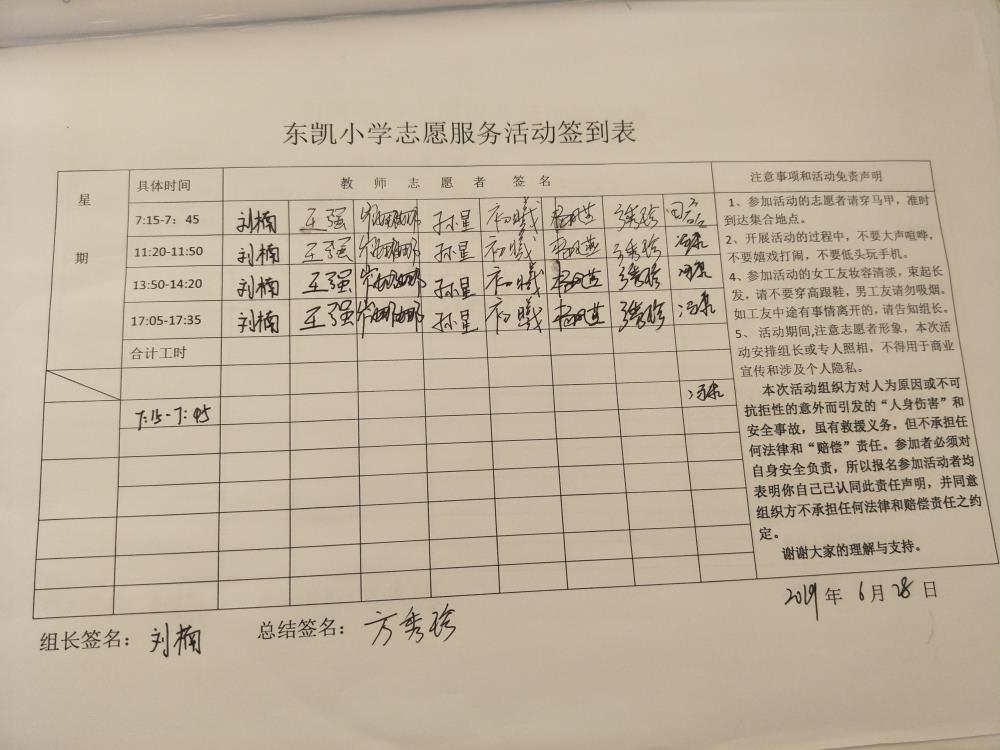 东凯小学志愿服务活动签到表
星期
具体时间
教 师 志 愿 者 签 名
注意事项和活动免责声明
7:15-7：45 刘楠 王强 孙星 初曦
11:20-11:50 刘楠 王强 孙星 初曦
13:50-14:20 刘楠 王强 孙星 初曦
17:05-17:35 刘楠 王强 孙星 初曦
合计工时
7:15-7:45
1、参加活动的志愿者请穿马甲，准时
到达集合地点。
2、开展活动的过程中，不要大声喧哗，
不要嬉戏打闹，不要低头玩手机。
4、参加活动的女工友妆容清淡，束起长
发，请不要穿高跟鞋，男工友请勿吸烟。
如工友中途有事情离开的，请告知组长。
5、 活动期间,注意志愿者形象，本次活
动安排组长或专人照相，不得用于商业
宣传和涉及个人隐私。
本次活动组织方对人为原因或不可
抗拒性的意外而引发的“人身伤害”和
安全事故，虽有救援义务，但不承担任
何法律和“赔偿”责任。参加者必须对
自身安全负责，所以报名参加活动者均
表明你自己已认同此责任声明，并同意
组织方不承担任何法律和赔偿责任之约
定。
谢谢大家的理解与支持。
2019 年 6 月 28 日
组长签名： 刘楠 总结签名： 方秀珍